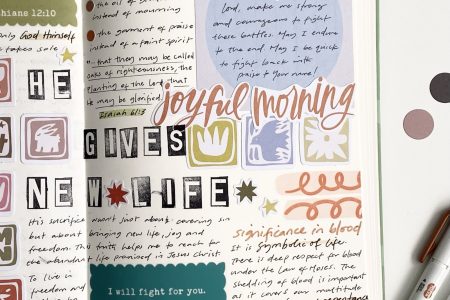 phaniah 3:17
only God Himself
takes sole
the oil of
instead of mourning
the garment of praise
instead of a faint spirit
that they may be called
oaks of righteousness, the
planting of the Lord, that
He may be glorified.
Isaiah 61:3
lord, make me strong
and courageous to fight
these battles. May I endure
to the end. May I be quick
to fight back with
praise to Your name!
joyful morning
HE
GIVES
NEW LIFE
His sacrifice wasn't just about covering sin
but about bringing new life, joy and
freedom. This truth helps me to reach for
the abundant life promised in Jesus Christ
To live in
freedom and
I will fight for you.
Significance in blood
It is symbolic of life.
there is deep respect for blood
under the Law of Moses. The
shedding of blood is important
as it covers our